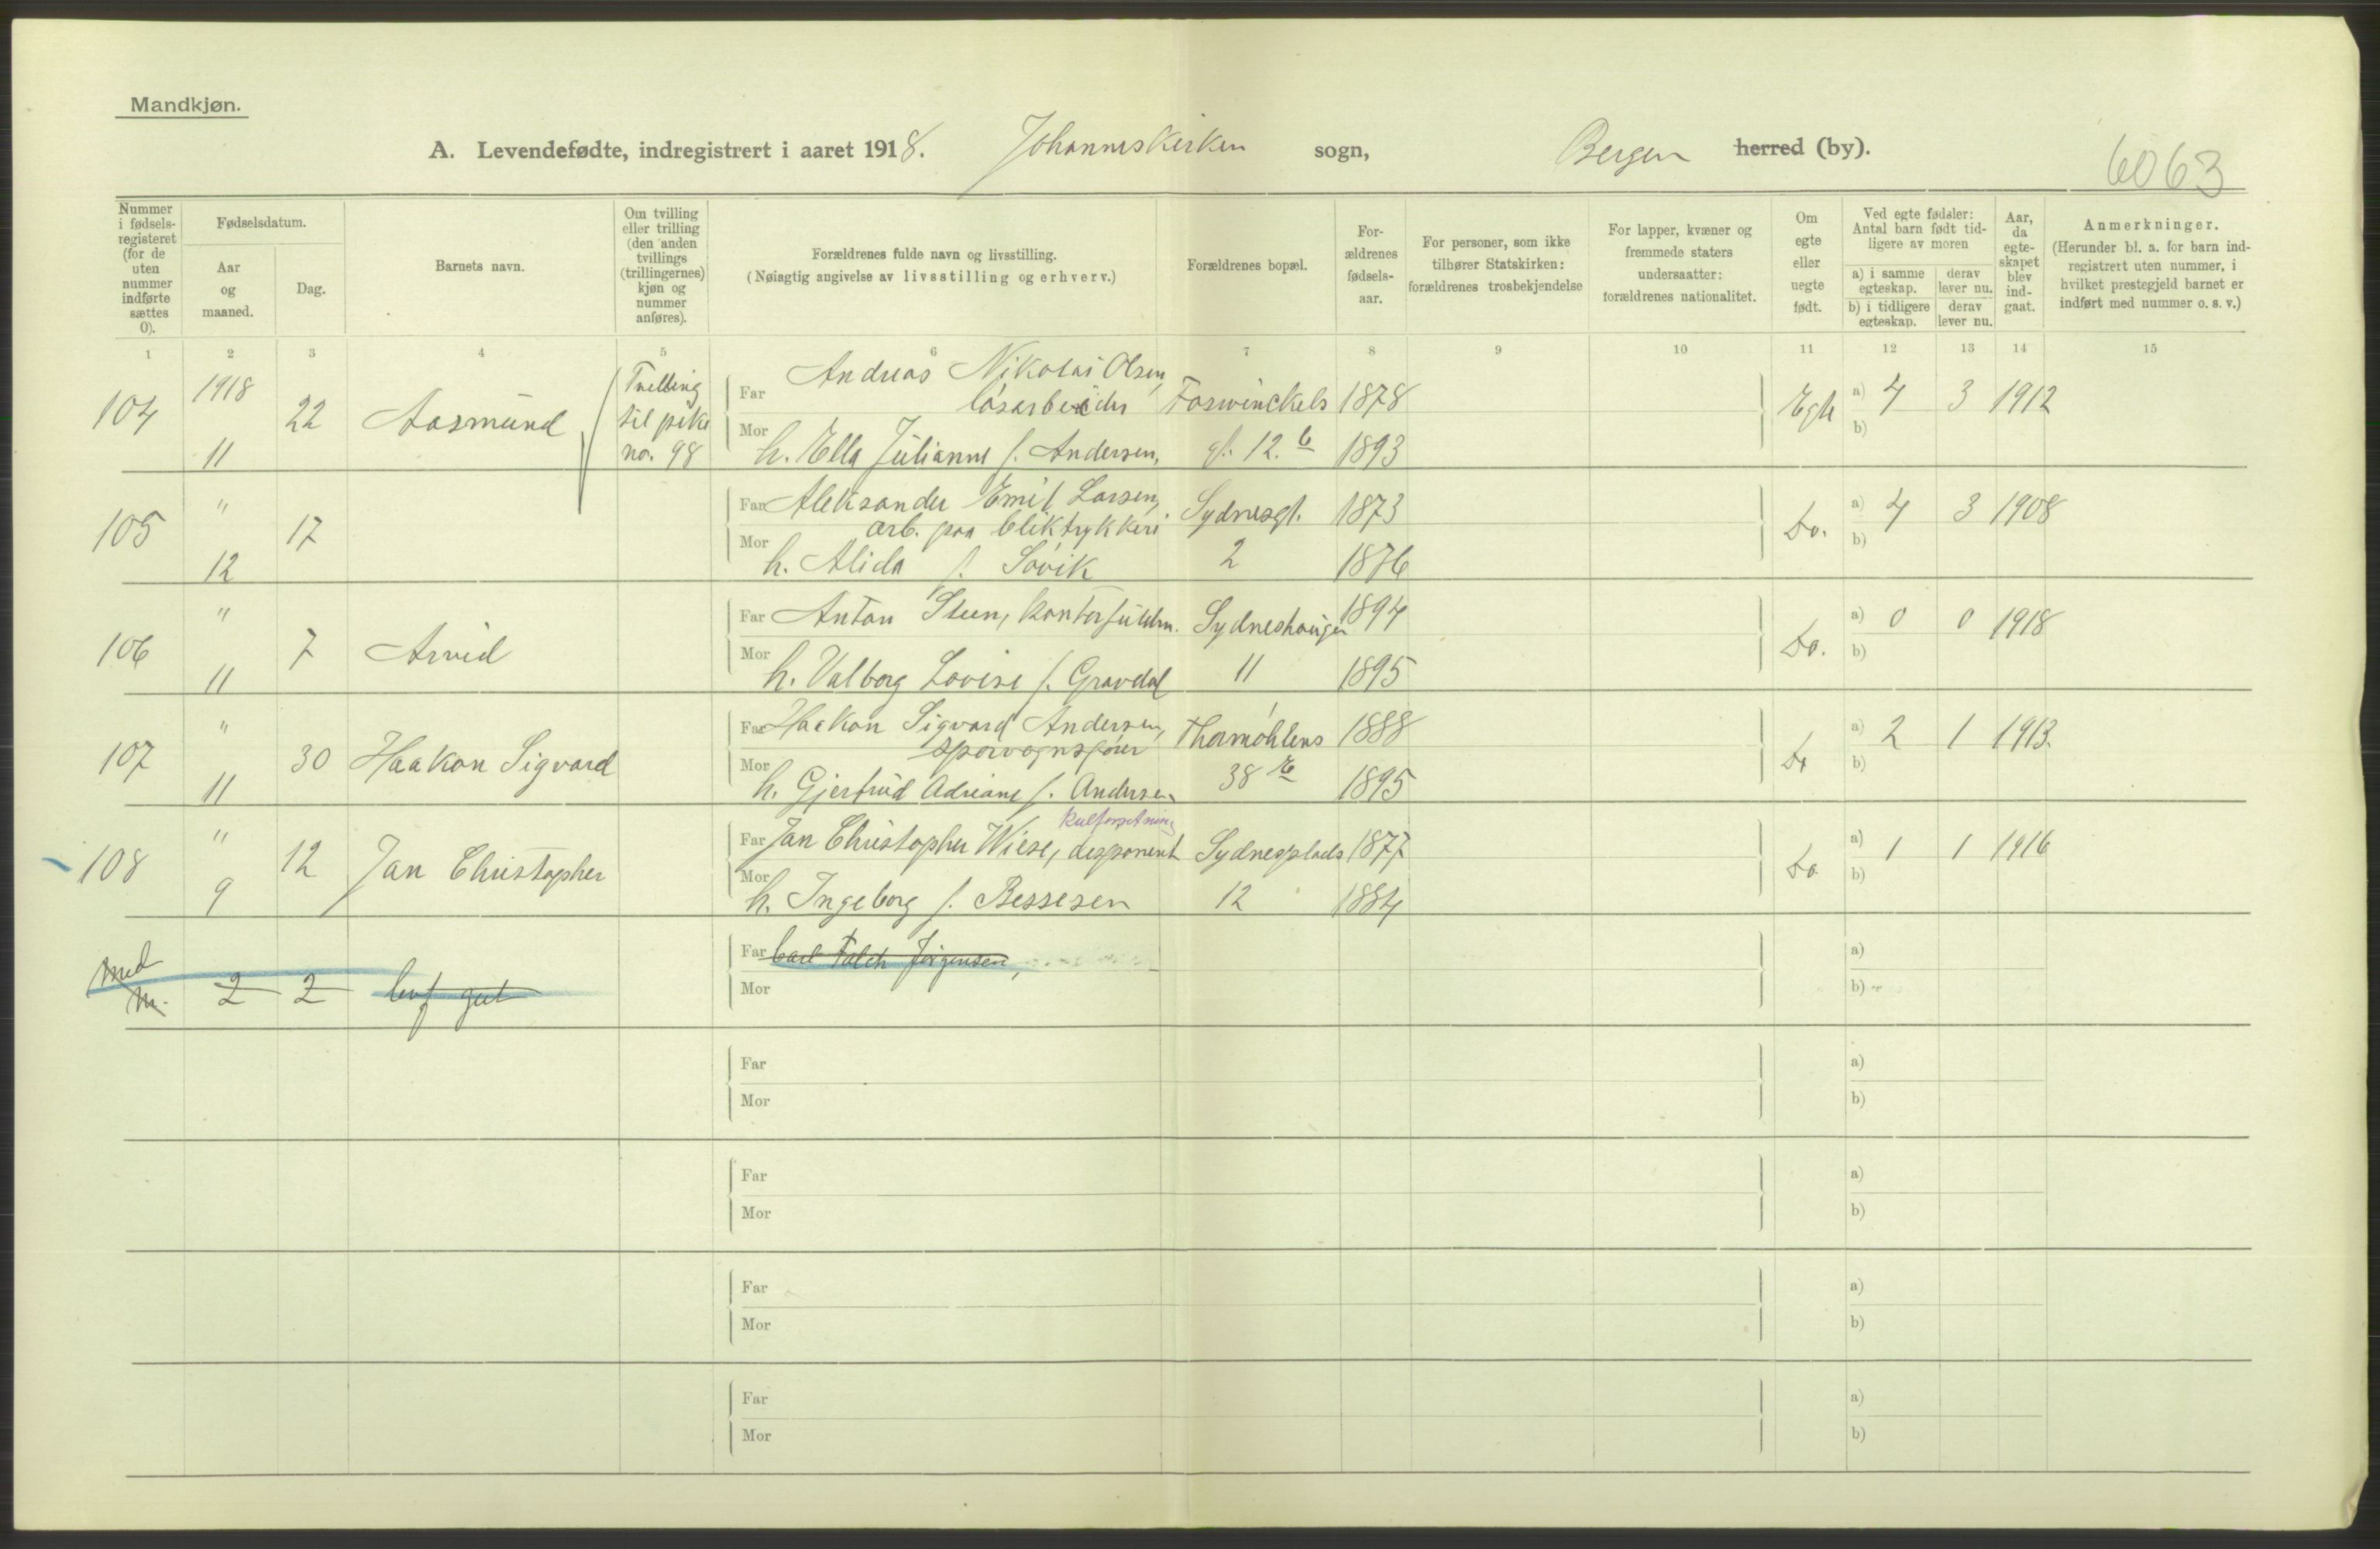 Mandkjøn.
A. Levendefødte, indregistrert i aaret 1918. Johanneskirken sogn, Bergen herred (by). 6063
Nummer i fødselsregisteret (for de uten nummer indførte sættes 0).
Fødselsdatum.
Aar og maaned.
Dag.
Barnets navn.
Om tvilling eller trilling (den anden tvillings (trillingernes) kjøn og nummer anføres).
Forældrenes fulde navn og livsstilling.
(Nøiagtig angivelse av livsstilling og erhverv.)
Forældrenes bopæl.
Forældrenes fødselsaar.
For personer, som ikke tilhører Statskirken: forældrenes trosbekjendelse
For lapper, kvæner og fremmede staters undersaatter: forældrenes nationalitet.
Om egte eller uegte født.
Ved egte fødsler: Antal barn født tidligere av moren
a) i samme egteskap. derav lever nu.
b) i tidligere egteskap. derav lever nu.
Aar, da egteskapet blev indgaat.
Anmerkninger.
(Herunder bl. a. for barn indregistrert uten nummer, i hvilket prestegjeld barnet er indført med nummer o. s. v.)
1 2 3 4 5 6 7 8 9 10 11 12 13 14 15
104 1918 11 22 Aasmund Tvilling til pike no. 98
Far Andreas Nikolai Olsen, løsarbeider Foswinckels 1878 Egte a) 4 3 1912
Mor h. Ella Julianne f. Andersen, gt. 12.b 1893 b)
105 " 12 17
Far Aleksander Emil Larsen, arb. paa bliktrykkeri Sydnesgt. 1873 Do. a) 4 3 1908
Mor h. Alida f. Søvik 2 1876 b)
106 " 11 7 Arvid
Far Anton Steen, kontorfuldm. Sydneshaugen 1894 Do. a) 0 0 1918
Mor h. Valborg Lovise f. Gravdal 11 1895 b)
107 " 11 30 Haakon Sigvard
Far Haakon Sigvard Andersen, sporvognsfører Thormøhlens 1888 Do a) 2 1 1913.
Mor h. Gjertrud Adriane f. Andersen 38 E 1895 b)
kulforretning
108 " 9 12 Jan Christopher
Far Jan Christopher Wiese, disponent Sydnesplads 1877 Do a) 1 1 1916
Mor h. Ingeborg f. Bessesen 12 1884 b)
med m. 2 2 gut
Far Carl Falch Jørgensen, a)
Mor b)
Far a)
Mor b)
Far a)
Mor b)
Far a)
Mor b)
Far a)
Mor b)